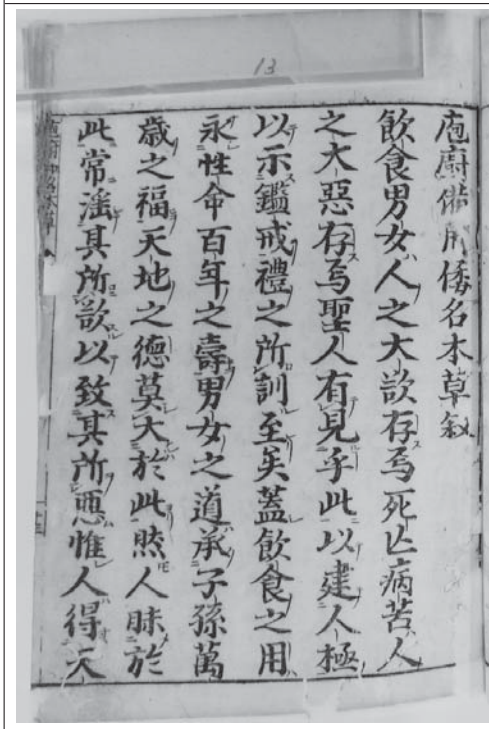 13
庖廚備用倭名本草叙
飲食男女人之大欲存焉死亡病苦人
之大惡存焉聖人有見乎此以建人極
以示鑑戒禮之所訓至矣蓋飲食之用
永性命百年之壽男女之道承子孫萬
歳之福天地之德莫大於此然人昧於
此常淫其所欲以致其所惡惟人得天